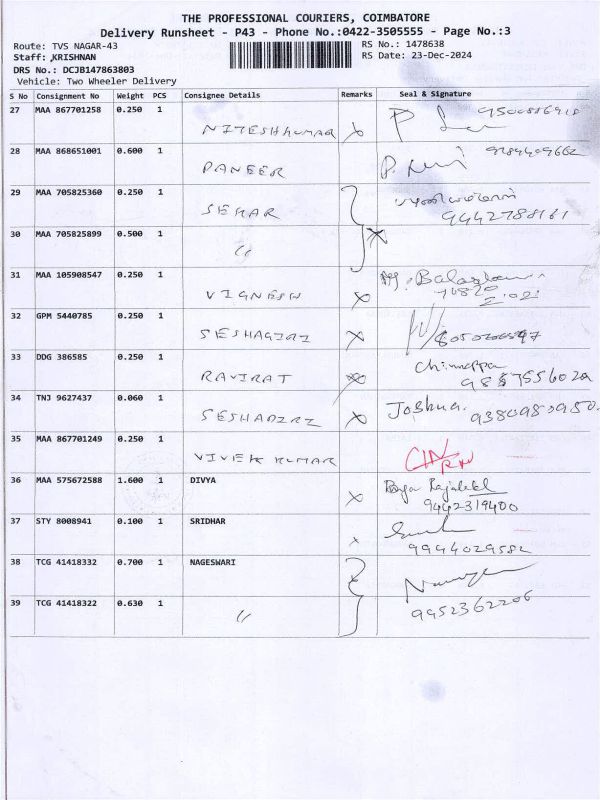 THE PROFESSIONAL COURIERS, COIMBATORE
Delivery Runsheet - P43 - Phone No.:0422-3505555 - Page No.:3
Route: TVS NAGAR-43 RS No.: 1478638
Staff: KRISHNAN RS Date: 23-Dec-2024
DRS No.: DCJB147863803
Vehicle: Two Wheeler Delivery
S No Consignment No Weight PCS Consignee Details Remarks Seal & Signature
27 MAA 867701258 0.250 1
NITESHKUMAR X
28 MAA 868651001 0.600 1
PANEER
29 MAA 705825360 0.250 1
SEKAR 9442788161
30 MAA 705825899 0.500 1
"
31 MAA 105908547 0.250 1
VIGNESH X
32 GPM 5440785 0.250 1
SESHAGIRI X
33 DDG 386585 0.250 1 Chinnappa
RAVIRAT X
34 TNJ 9627437 0.060 1 Joshua. 9380980950.
X
35 MAA 867701249 0.250 1
VIVEK KUMAR
36 MAA 575672588 1.600 1 DIVYA
X 9442319400
37 STY 8008941 0.100 1 SRIDHAR
x 9994029582
38 TCG 41418332 0.700 1 NAGESWARI
39 TCG 41418322 0.630 1 9952362206
"